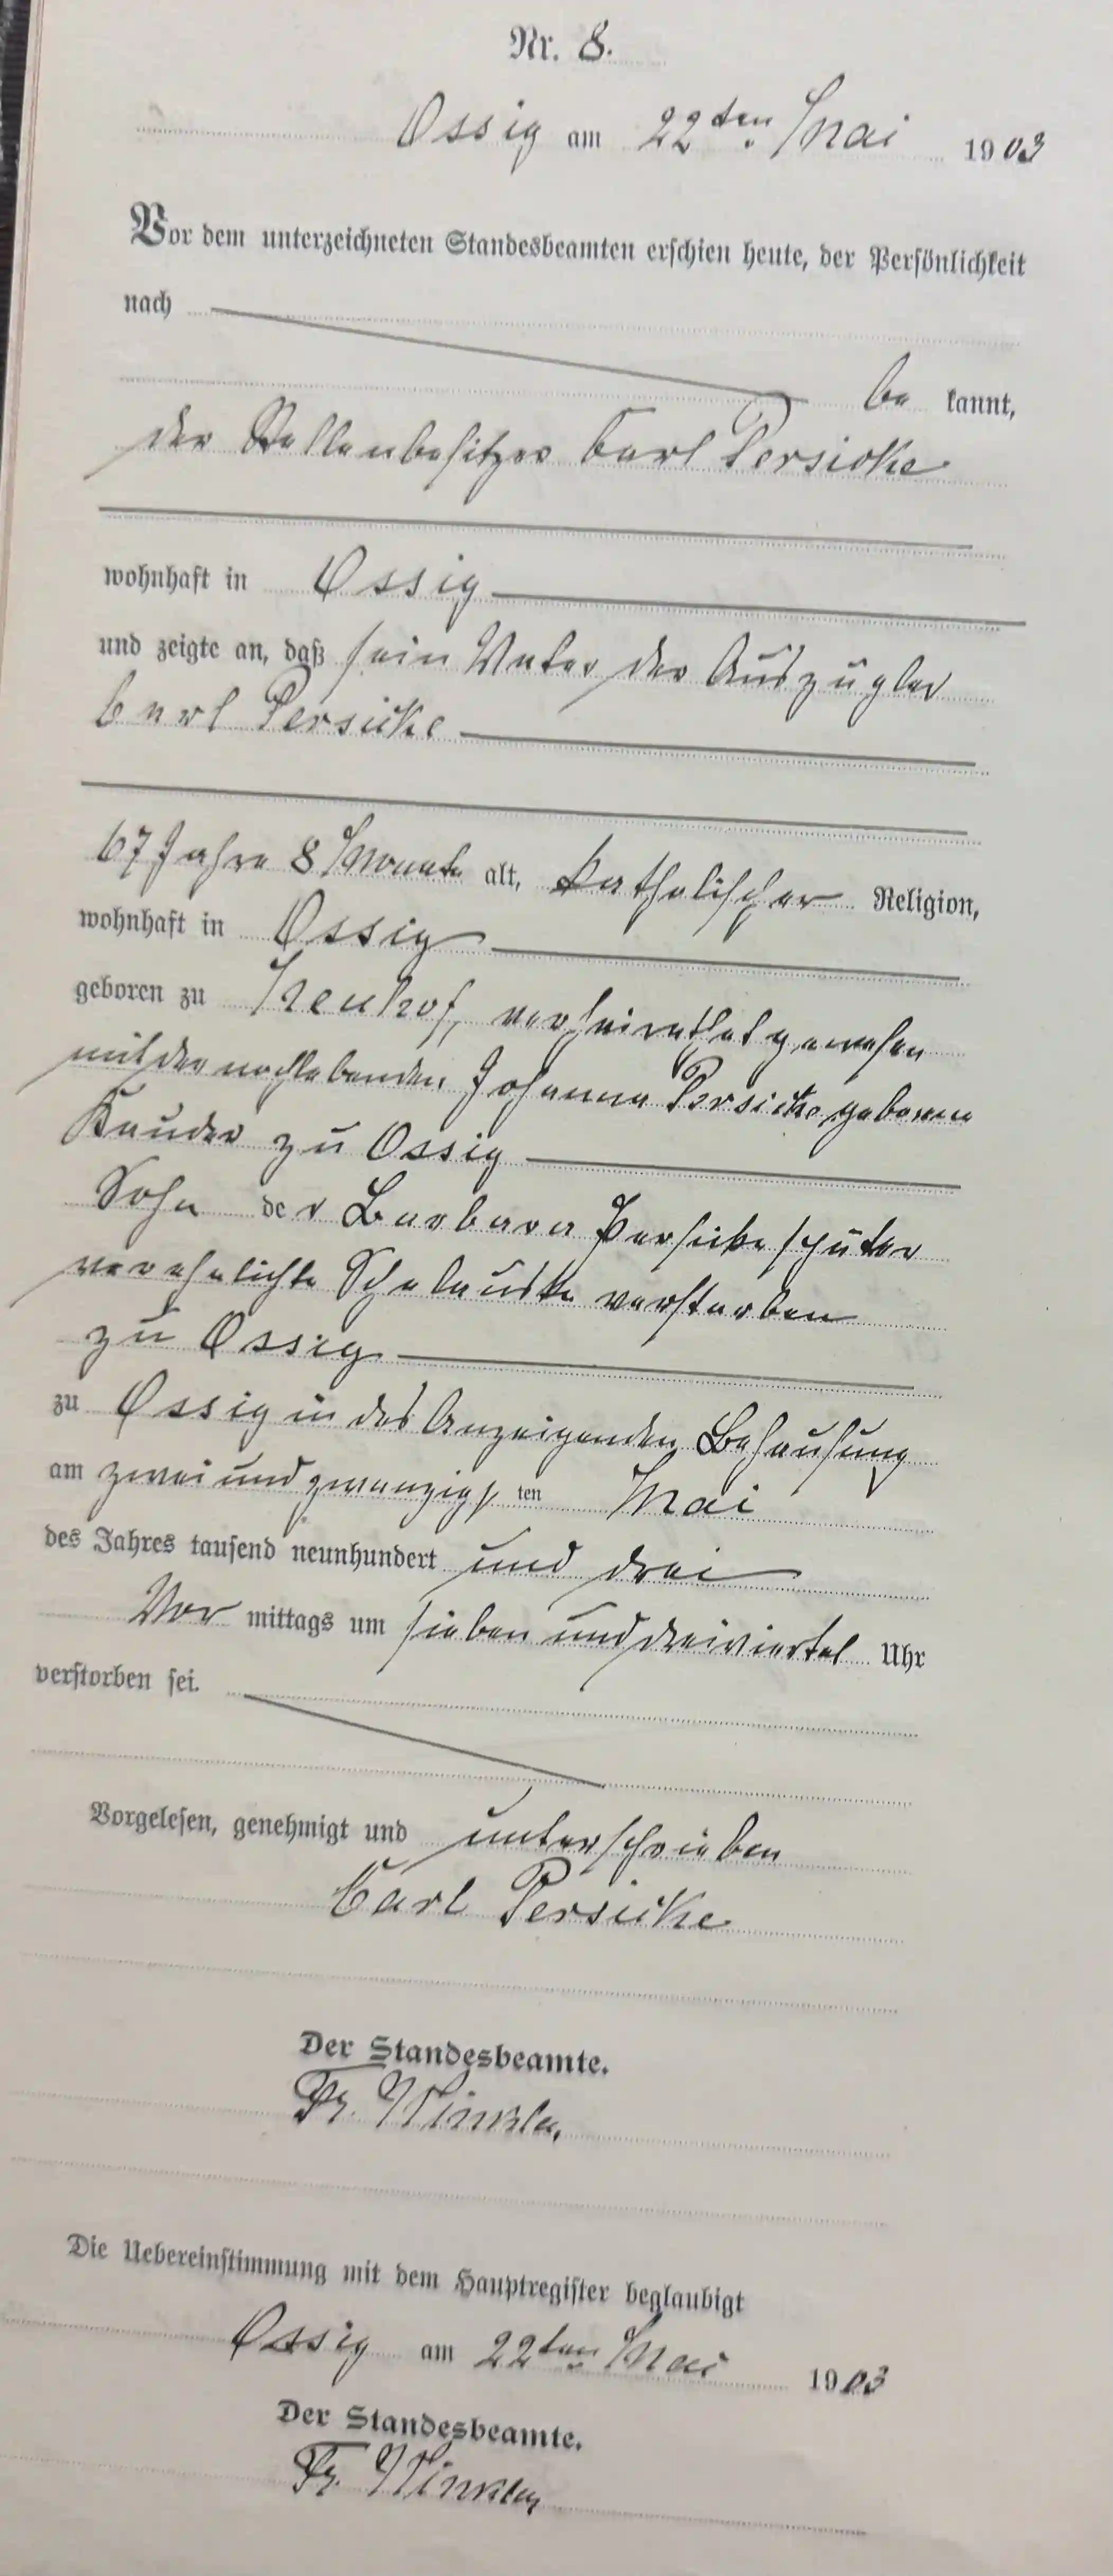 Nr. 8.
Ossig am 22ten Mai 1903
Vor dem unterzeichneten Standesbeamten erschien heute, der Persönlichkeit
nach
be kannt,
der Stellenbesitzer Carl Persicke
wohnhaft in Ossig
und zeigte an, daß sein Vater der Auszügler
Carl Persicke
67 Jahre 8 Monate alt, katholischer Religion,
wohnhaft in Ossig
geboren zu Neuhof, verheirathet gewesen
mit der noch lebenden Johanna Persicke geborene
Kauder zu Ossig
Sohn der Barbara Persicke später
verehelichte verstorben
zu Ossig
zu Ossig in des Anzeigenden Behausung
am zwei und zwanzigsten Mai
des Jahres tausend neunhundert und drei
Vor mittags um sieben und dreiviertel Uhr
verstorben sei.
Vorgelesen, genehmigt und unterschrieben
Carl Persicke
Der Standesbeamte.
Fr. Winkler
Die Uebereinstimmung mit dem Hauptregister beglaubigt
Ossig am 22ten Mai 1903
Der Standesbeamte.
Fr. Winkler